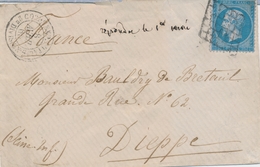 France
répondre le 1er mai
Monsieur Bruhdry de Breteuil
Grande Rue N° 62
Dieppe
(Seine Inf.)